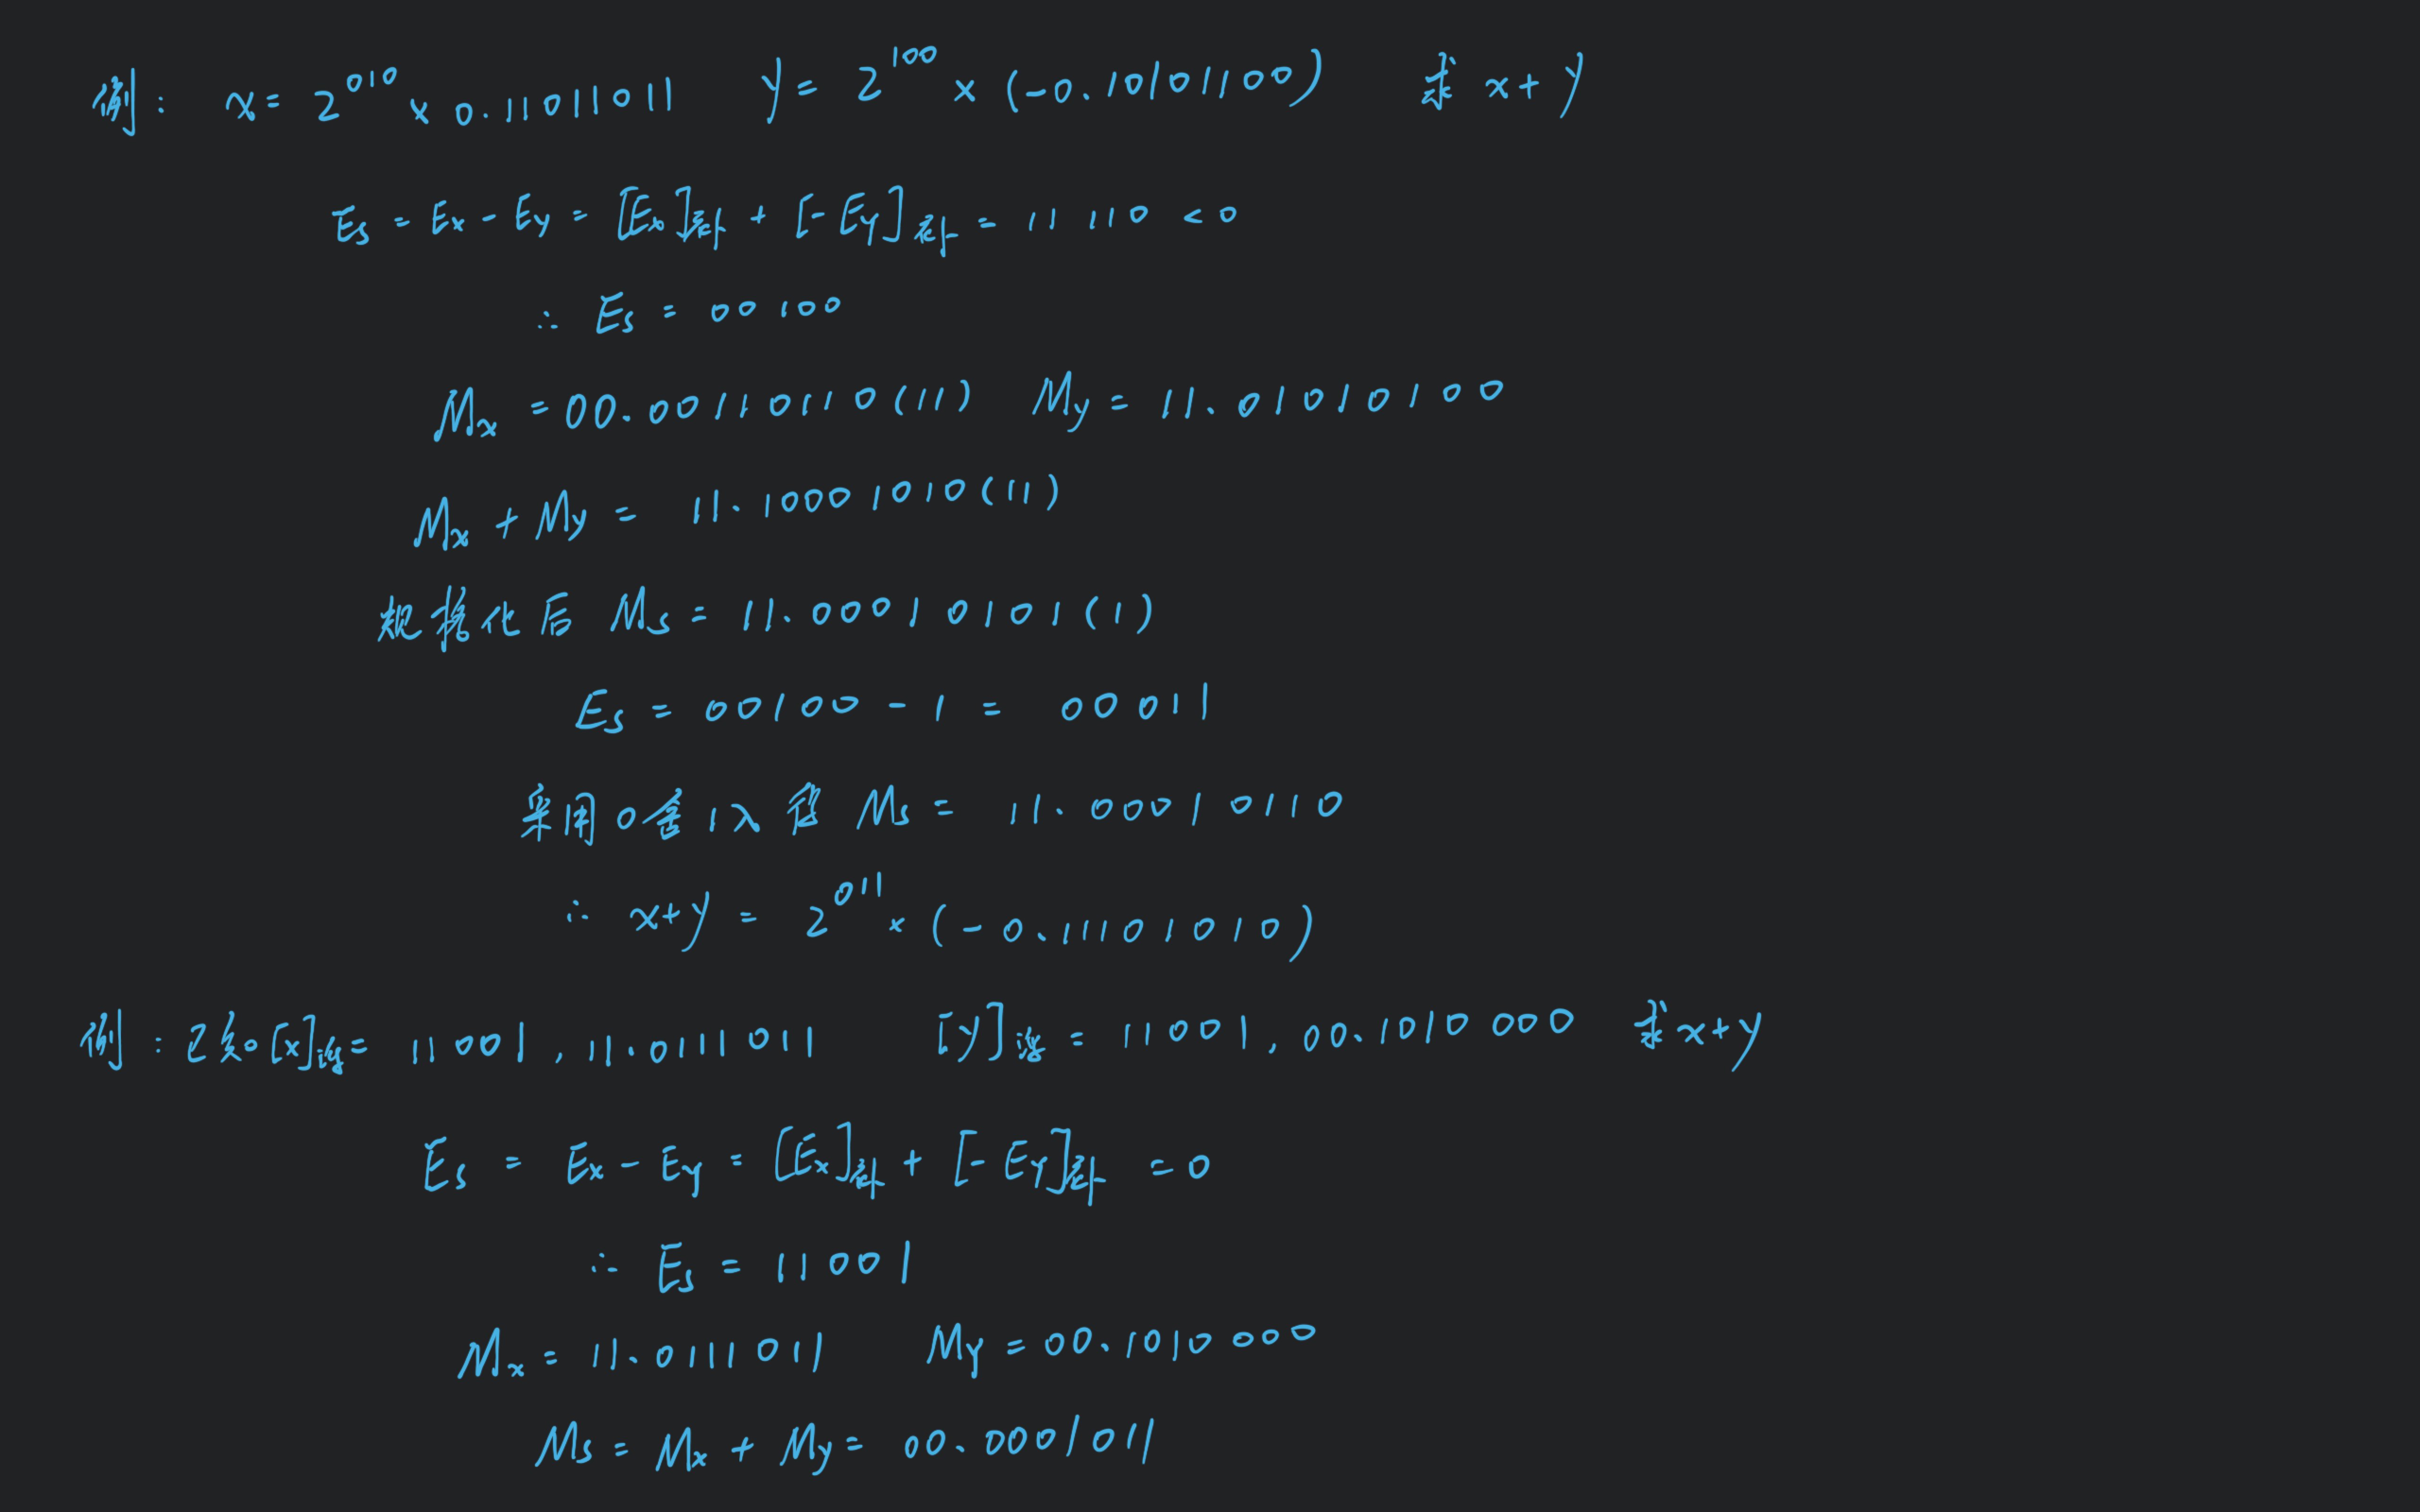 例: x = 2^010 × 0.11011011 y = 2^100 × (-0.10101100) 求 x+y
Es = Ex - Ey = [Ex]补 + [-Ey]补 = 11 110 < 0
∴ Es = 00 100
Mx = 00.00110110(11) My = 11.01010100
Mx + My = 11.10001010(11)
规格化后 Ms = 11.00010101(1)
Es = 00100 - 1 = 00011
采用0舍1入得 Ms = 11.00010110
∴ x+y = 2^011 × (-0.11101010)
例: 已知 [x]浮 = 11001, 11.0111011 [y]浮 = 11001, 00.1010000 求 x+y
Es = Ex - Ey = [Ex]补 + [-Ey]补 = 0
∴ Es = 11001
Mx = 11.0111011 My = 00.1010000
Ms = Mx + My = 00.0001011